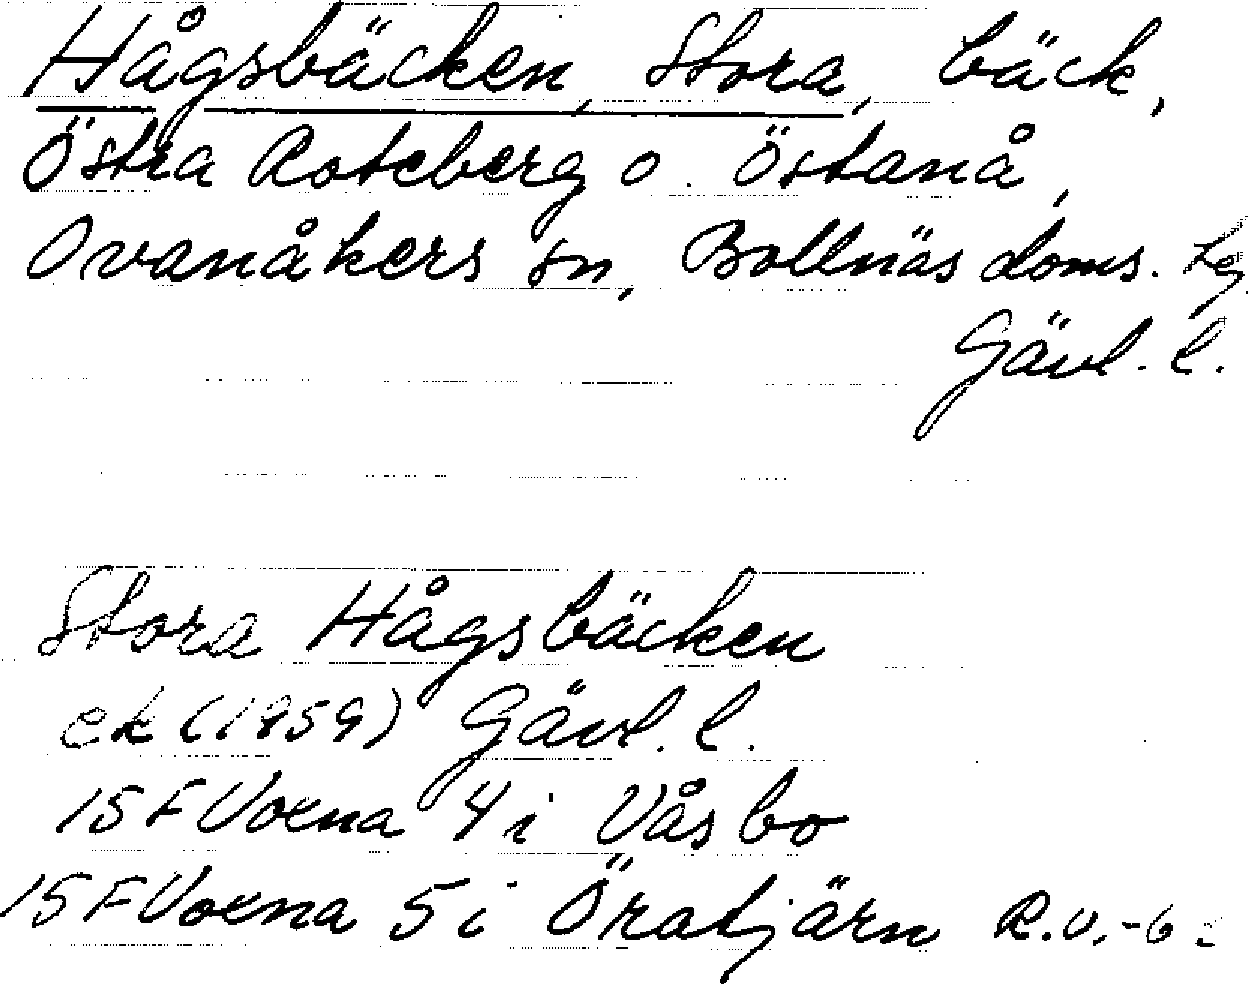 Hågsbäcken, Stora, bäck,
Östra Roteberg o. Östanå,
Ovanåkers sn, Bollnäs doms. lg,
Gävl. l.
Stora Hågsbäcken
ek (1959) Gävl. l.
15 F Voxna 4 i Våsbo
15 F Voxna 5 i Öratjärn R.O. -6